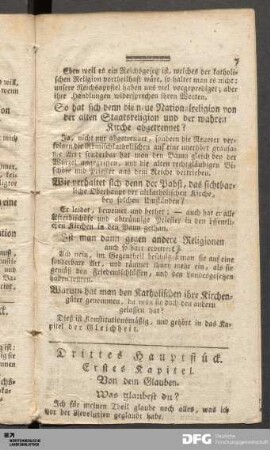 7
Eben weil es ein Reichsgesetz ist, welches der katholi-
schen Religion vortheilhaft wäre, so haltet man es nicht;
unsere Reichsapostel haben uns viel vorgeprediget, aber
ihre Handlungen widersprechen ihren Worten.
So hat sich denn die neue National-Religion von
der alten Staatsreligion und der wahren
Kirche abgetrennet?
Ja, nicht nur abgetrennet, sondern die Neuerer ver-
folgen die Römischkatholischen auf eine unerhört grausa-
me Art
Bischöfe und Priester aus dem Reich vertrieben.
Wie verhaltet sich denn der Pabst, das sichtba-
re Oberhaupt der altkatholischen Kirche,
bey solchen Umständen?
Er leidet, beweinet und betet; — auch hat er alle
Afterbischöfe und abtrünnige Priester in den öffentli-
chen Kirchen in den Bann gethan.
Ist man dann gegen andere Religionen
auch so hart
Ach nein, im Gegentheil beschützt man sie auf eine
sonderbare Art, und räumet ihnen mehr ein, als sie
gemäß den Friedensschlüssen, und den Landesgesetzen
Warum hat man den Katholischen ihre Kirchen-
güter genommen, da man sie doch den andern
gelassen hat?
Dieß ist Konstitutionsmäßig, und gehört in das Ka-
pitel der Gleichheit.
Drittes Hauptstück.
Erstes Kapitel.
Von dem Glauben.
Was glaubest du?
Ich für meinen Theil glaube noch alles, was ich
vor der Revolution geglaubt habe.
WÜRTTEMBERGISCHE
LANDESBIBLIOTHEK
DFG
Deutsche
Forschungsgemeinschaft